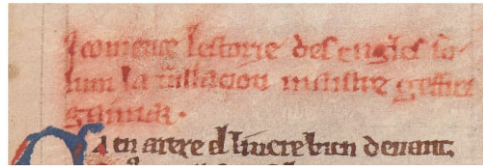 I comence lestorie des engles so-
lum la translacion maistre geffrei
gaimar.
CA en arere el liuere bien deuant